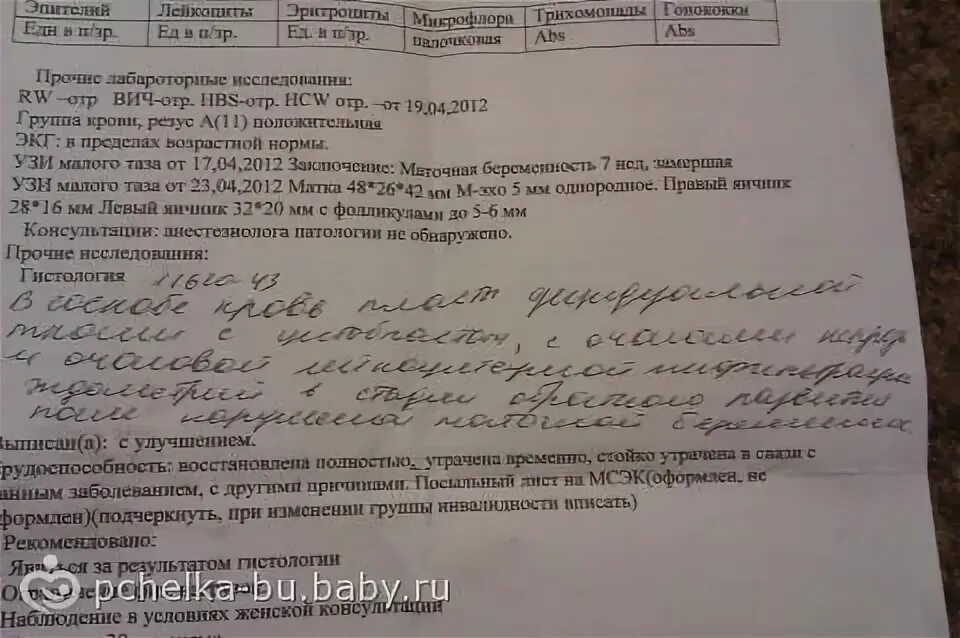 Эпителий Лейкоциты Эритроциты Микрофлора Трихомонады Гонококки
Едн в п/зр. Ед в п/зр. Ед. в п/зр. палочковая Abs Abs
Прочие лабароторные исследования:
RW –отр ВИЧ-отр. HBS-отр. HCW отр. –от 19.04.2012
Группа крови, резус А(11) положительная
ЭКГ: в пределах возрастной нормы.
УЗИ малого таза от 17,04,2012 Заключение: Маточная беременность 7 нед, замершая
УЗИ малого таза от 23,04,2012 Матка 48*26*42 мм М-эхо 5 мм однородное. Правый яичник
28*16 мм Левый яичник 32*20 мм с фолликулами до 5-6 мм
Консультации: анестезиолога патологии не обнаружено.
Прочие исследования:
Гистология 11620-43
В соскобе кровь пласт децидуальной
ткани с цитобластом, с очагами
и очаговой лейкоцитарной инфильтрации
эндометрий в стадии обратного развития
после нарушенной маточной беременности
Выписан(а): с улучшением.
рудоспособность: восстановлена полностью, утрачена временно, стойко утрачена в связи с
анным заболеванием, с другими причинами. Посыльный лист на МСЭК(оформлен, не
формлен)(подчеркнуть, при изменении группы инвалидности вписать)
Рекомендовано:
Явиться за результатом гистологии
pchelka-bu.baby.ru
Наблюдение в условиях женской консультации